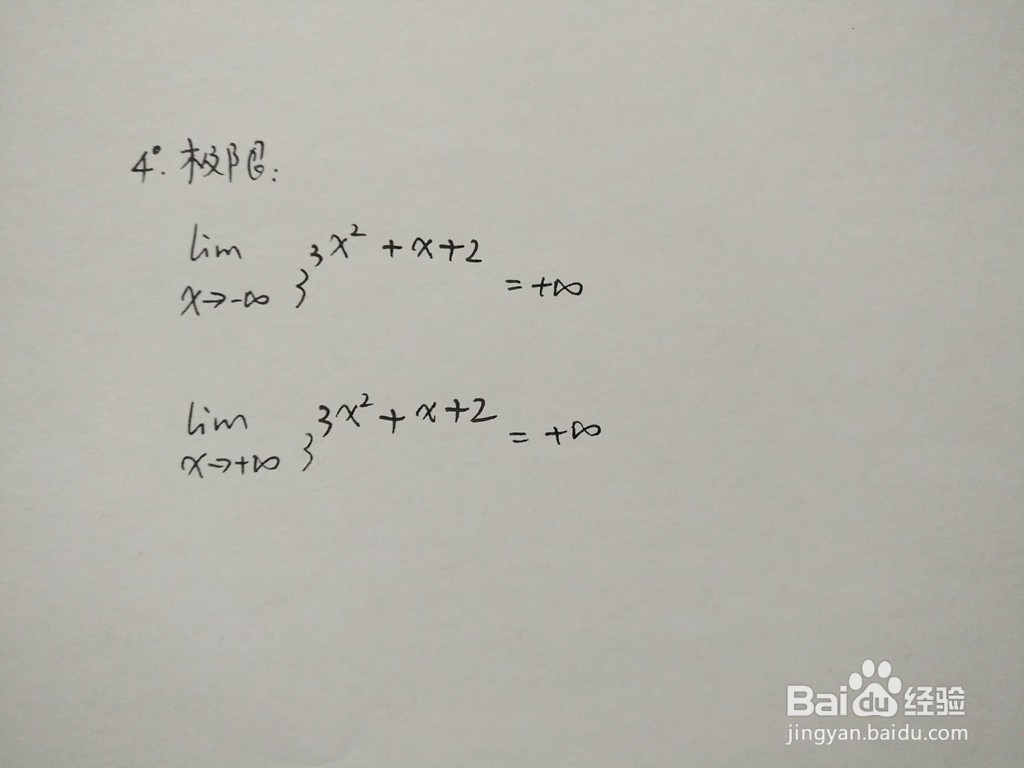 4°. 极限:
lim 3^{3x² + x + 2} = +∞
x→-∞
lim 3^{3x² + x + 2} = +∞
x→+∞
Baidu 经验
jingyan.baidu.com